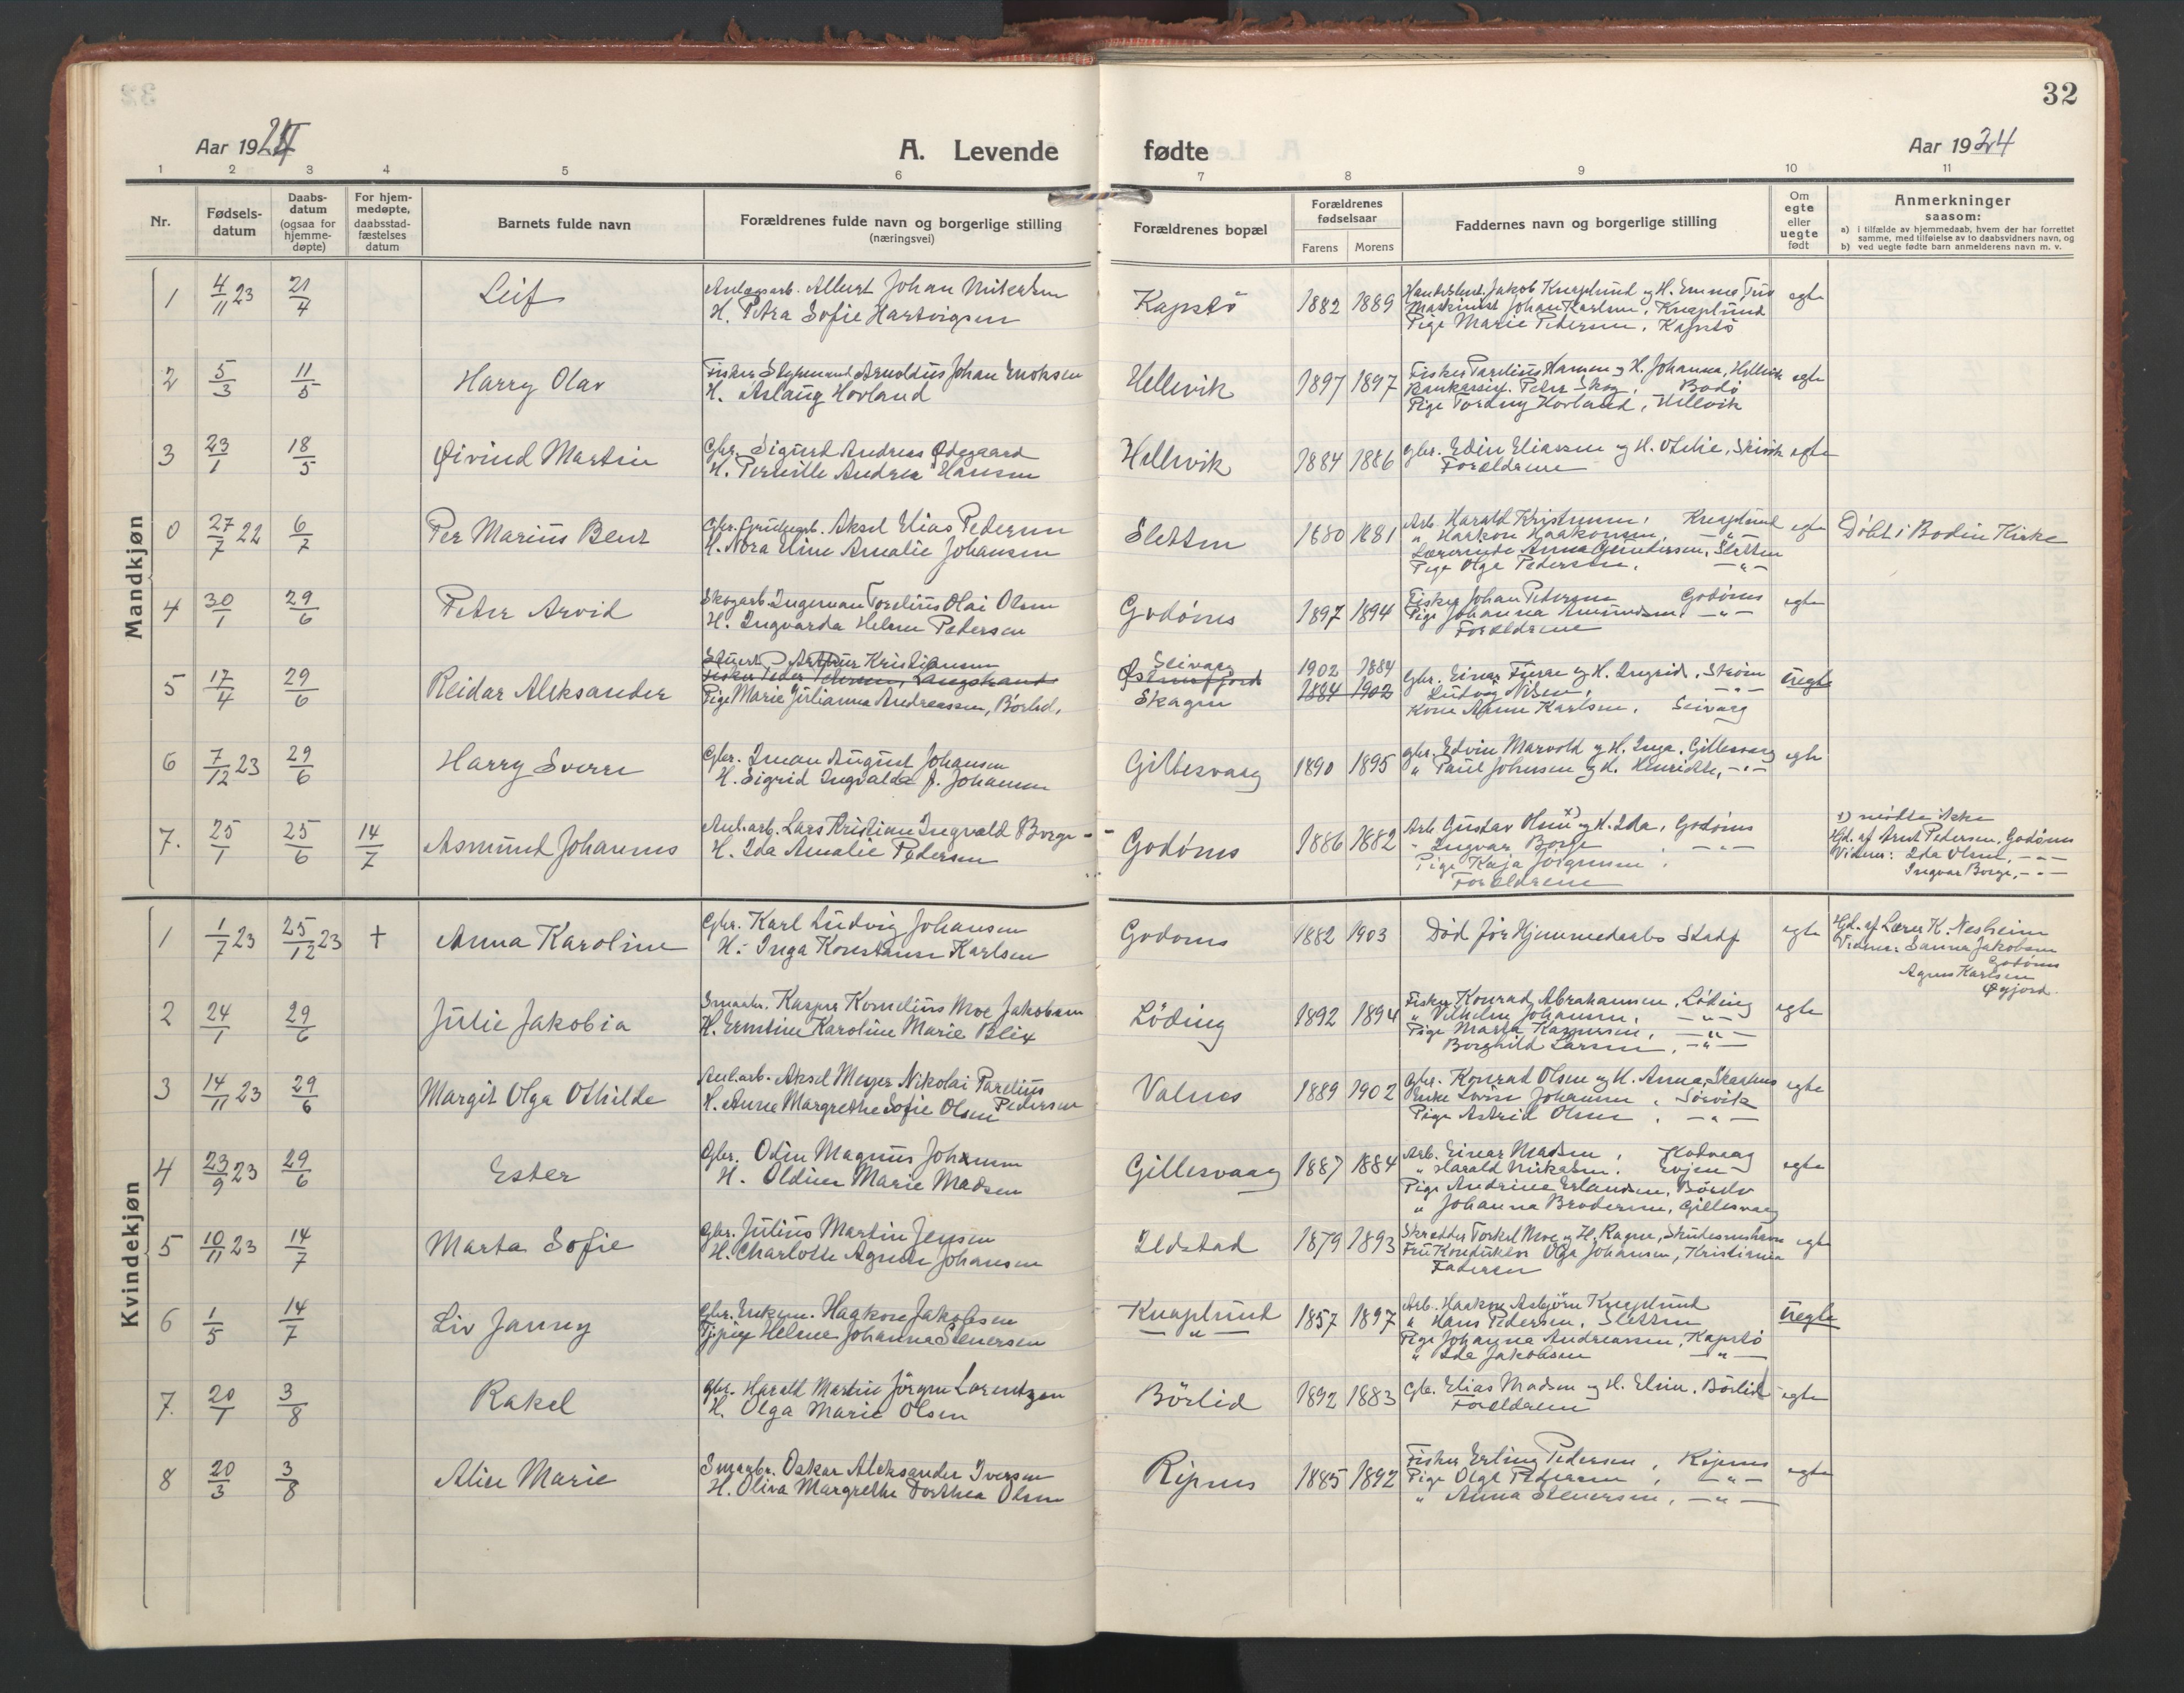 32
Aar 1924
A. Levende fødte
Aar 1924
1 2 3 4 5 6 7 8 9 10 11
Nr.
Fødsels-datum
Daabs-datum (ogsaa for hjemme-døpte)
For hjem-medøpte, daabsstad-fæstelses datum
Barnets fulde navn
Forældrenes fulde navn og borgerlige stilling (næringsvei)
Forældrenes bopæl
Forældrenes fødselsaar
Farens Morens
Faddernes navn og borgerlige stilling
Om egte eller uegte født
Anmerkninger saasom:
a) i tilfælde av hjemmedaab, hvem der har forrettet samme, med tilføielse av to daabsvidners navn, og
b) ved uegte fødte barn anmelderens navn m. v.
Mandkjøn
1 4/11 23 21/4 Leif
Anlægsarb. Albert Johan Mikalsen
H. Petra Sofie Hartvigsen
Kapstø 1882 1889
Handelsbest. Jakob Knaplund og H. Emma,
Maskinist Johan Karlsen, Knaplund
Pige Marie Pedersen, Kapstø
egte
2 5/3 11/5 Harry Olav
Fisker Arnoldus Johan Enoksen
H. Aslaug Hovland
Hellevik 1897 1897
Fisker Parelius Hansen og H. Johanna, Hellevik
Bankassist. Peter Skog, Bodø
Pige Tordny Hovland, Hellvik
egte
3 23/1 18/5 Øivind Martin
Gbr. Sigurd Andreas Ødegaard
H. Pernille Andrea Hansen
Hellevik 1884 1886
Gbr. Edin Eliassen og H. Otelie, Skivik
Forældrene
egte
0 27/7 22 6/7 Per Marius Bent
Gbr. Grubearb. Aksel Elias Pedersen
H. Nora Eline Amalie Johansen
Sletten 1880 1881
Arb. Harald Kristensen, Knaplund
" Haakon Haakonsen, -"-
Lærerinde Anna Gundersen, Sletten
Pige Olga Pedersen, -"-
egte Døbt i Bodin Kirke
4 30/1 29/6 Peter Arvid
Skogarb. Ingeman Torelius Olai Olsen
H. Ingvarda Helene Pedersen
Godønes 1897 1894
Fisker Johan Pedersen Godønes
Pige Johanna Amundsen, -"-
Forældrene
egte
5 17/4 29/6 Reidar Aleksander
Stuert Arthur Kristiansen
Fisker Peder Pedersen, Langstrand
Pige Marie Julianna Andreassen, Børlid,
Seivaag
Østerfjord
Skagen
1902 1884
1884 1902
Gbr. Einar Furre og H. Ingrid, Strøm
Ludvig Nilsen, -"-
Kone Anna Karlsen, Seivaag
uegte
6 7/12 23 29/6 Harry Sverre
Gbr. Iman August Johansen
H. Sigrid Ingvalda f. Johansen
Gillesvaag 1890 1895
Gbr. Edvin Marvold og H. Inga, Gillesvaag
" Paul Johnsen og H. Henrikke, -"-
egte
7. 25/1 25/6 14/7 Asmund Johannes
Anl.arb. Lars Kristian Ingvald Borge
H. Ida Amalie Pedersen
Godønes 1886 1882
Arb. Gustav Olsen x) og H. Ida, Godønes
" Ingvar Borge -"-
Pige Kaja Jørgensen,
Forældrene
x) mødte ikke
Hjd. af Arnt Pedersen, Godønes
Vidner: Ida Olsen, -"-
Ingvar Borge, -"-
Kvindekjøn
1 1/7 23 25/12 23 + Anna Karoline
Gbr. Karl Ludvig Johansen
H. Inga Konstanse Karlsen
Godønes 1882 1903
Død før Hjemmedaabs Stadf
egte
Hjd. af Lærer K. Nesheim
Vidner: Sanna Jakobsen
Godønes
Agnes Karlsen
Øyjord
2 24/1 29/6 Julie Jakobia
Smaabr. Kasper Kornelius Moe Jakobsen
H. Ernstine Karoline Marie Blix
Løding 1892 1894
Fisker Konrad Abrahamsen, Løding
" Vilhelm Johansen, -"-
Pige Marta Kaspersen, -"-
Borghild Larsen, -"-
egte
3 14/11 23 29/6 Margit Olga Othilde
Anl.arb. Aksel Meyer Nikolai Parelius Pedersen
H. Anne Margrethe Sofie Olsen
Valnes 1889 1902
Gbr. Konrad Olsen og H. Anna, Skaanes
Enke Lovise Johansen, Sørvik
Pige Astrid Olsen, -"-
egte
4 23/9 23 29/6 Ester
Gbr. Odin Magnus Johansen
H. Oldine Marie Madsen
Gillesvaag 1887 1884
Arb. Einar Madsen, Hodvaag
" Harald Mikalsen, Evjen
Pige Andrine Erlandsen, Børelv
" Johanna Brodersen, Gillesvaag
egte
5 10/11 23 14/7 Marta Sofie
Gbr. Julius Martin Jensen
H. Charlotte Agnete Johansen
Ildstad 1879 1893
Skrædder Torkel Moe og H. Ragna, Skudesneshavn
Fru Konduktør Olga Johansen, Kristiania
Faderen
egte
6 1/5 14/7 Liv Janny
Gbr. Enkem. Haakon Jakobsen
Tjpige Helene Johanna Stenersen
Knaplund
-"-
1857 1897
Arb. Haakon Asbjørn Knaplund
" Hans Pedersen, Sletten
Pige Johanna Andreassen, Kapstø
" Ida Jakobsen -"-
uegte
7. 20/1 3/8 Rakel
Gbr. Harald Martin Jørgen Lorentzen
H. Olga Marie Olsen
Børlid 1892 1883
Gbr. Elias Madsen og H. Elise, Børlid
Forældrene
egte
8 20/3 3/8 Alise Marie
Smaabr. Oskar Aleksander Iversen
H. Oliva Margrethe Dorthea Olsen
Ripnes 1885 1892
Fisker Erling Pedersen, Ripnes
Pige Olga Pedersen, -"-
" Anna Stenersen, -"-
egte